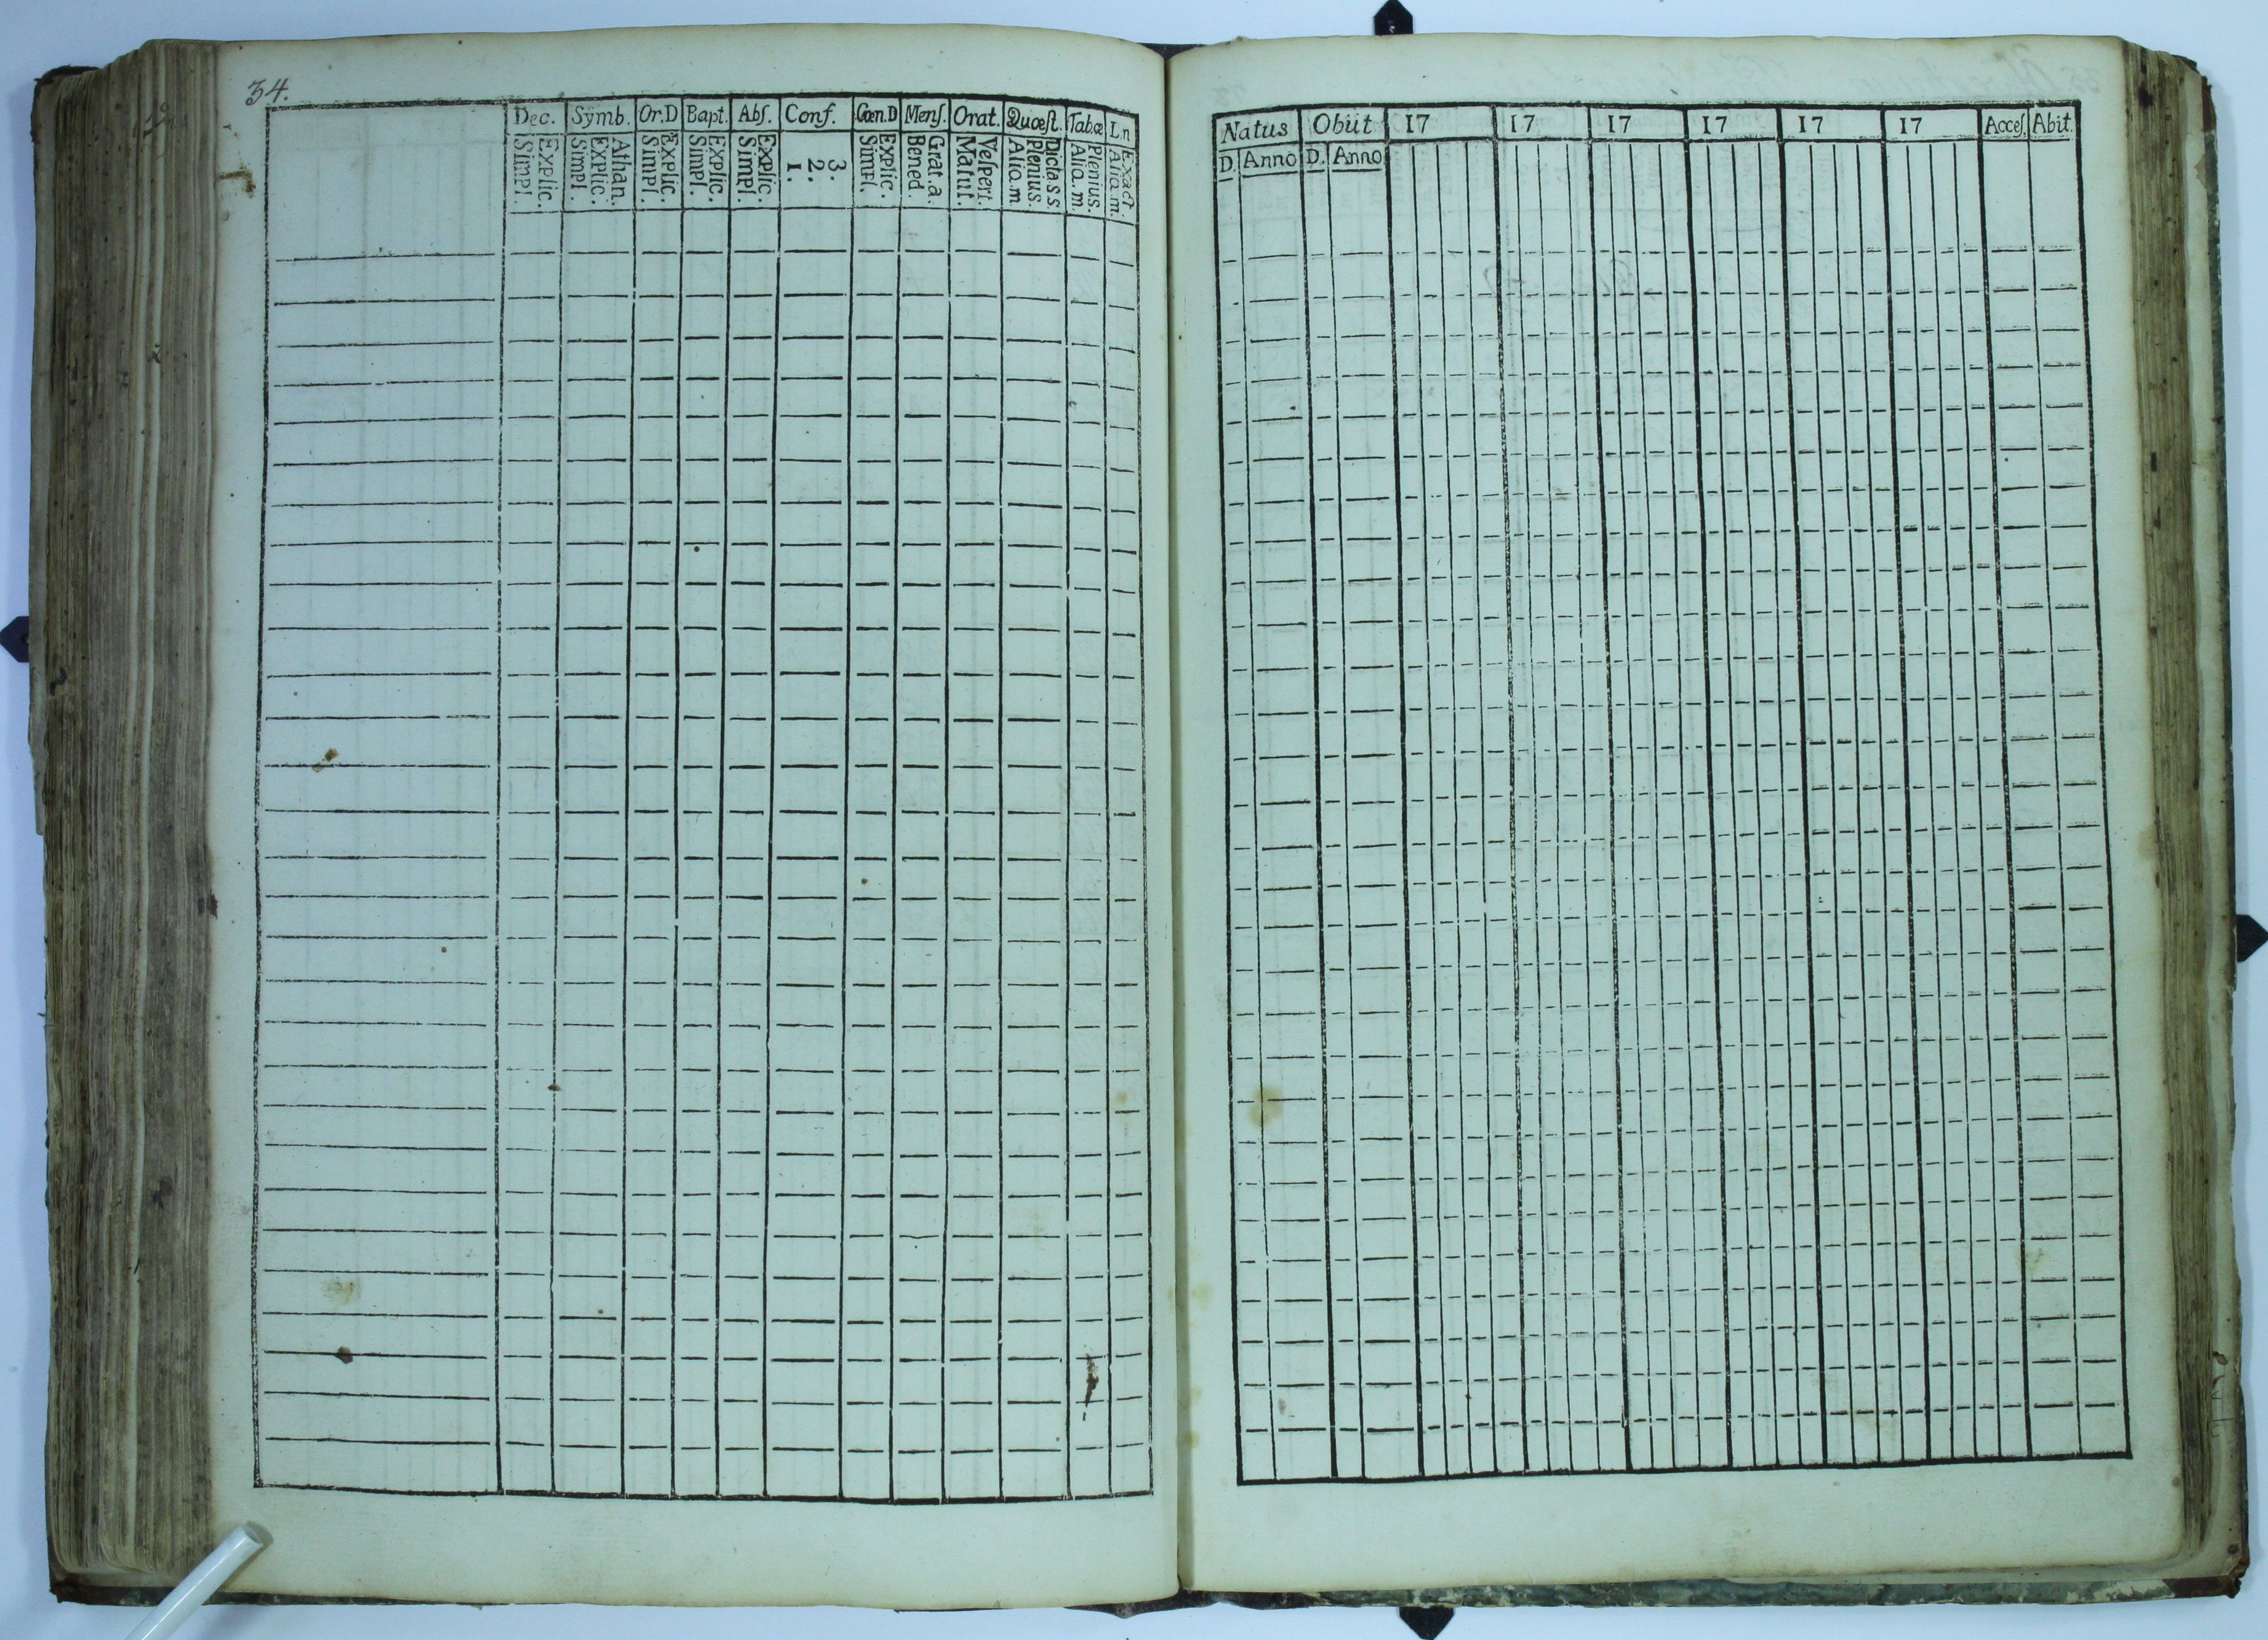 34.
Dec. Symb. Or.D Bapt. Abſ. Conf. Cœn.D Menſ. Orat. Quœſt. Tab.œ L.n
Explic. Simpl.
Athan. Explic. Simpl.
Explic. Simpl.
Explic. Simpl.
Explic. Simpl.
3. 2. 1.
Explic. Simpl.
Grat.a. Bened.
Veſpert. Matut.
Dicta s s. Plenius. Alio.m
Plenius. Alia.m.
Exact. Alia.m.
Natus Obiit 17 17 17 17 17 17 Acceſ. Abit.
D. Anno D. Anno